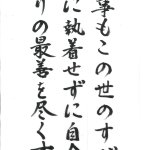 もこの世のす
に執着せずに自分
りの最善を尽くす